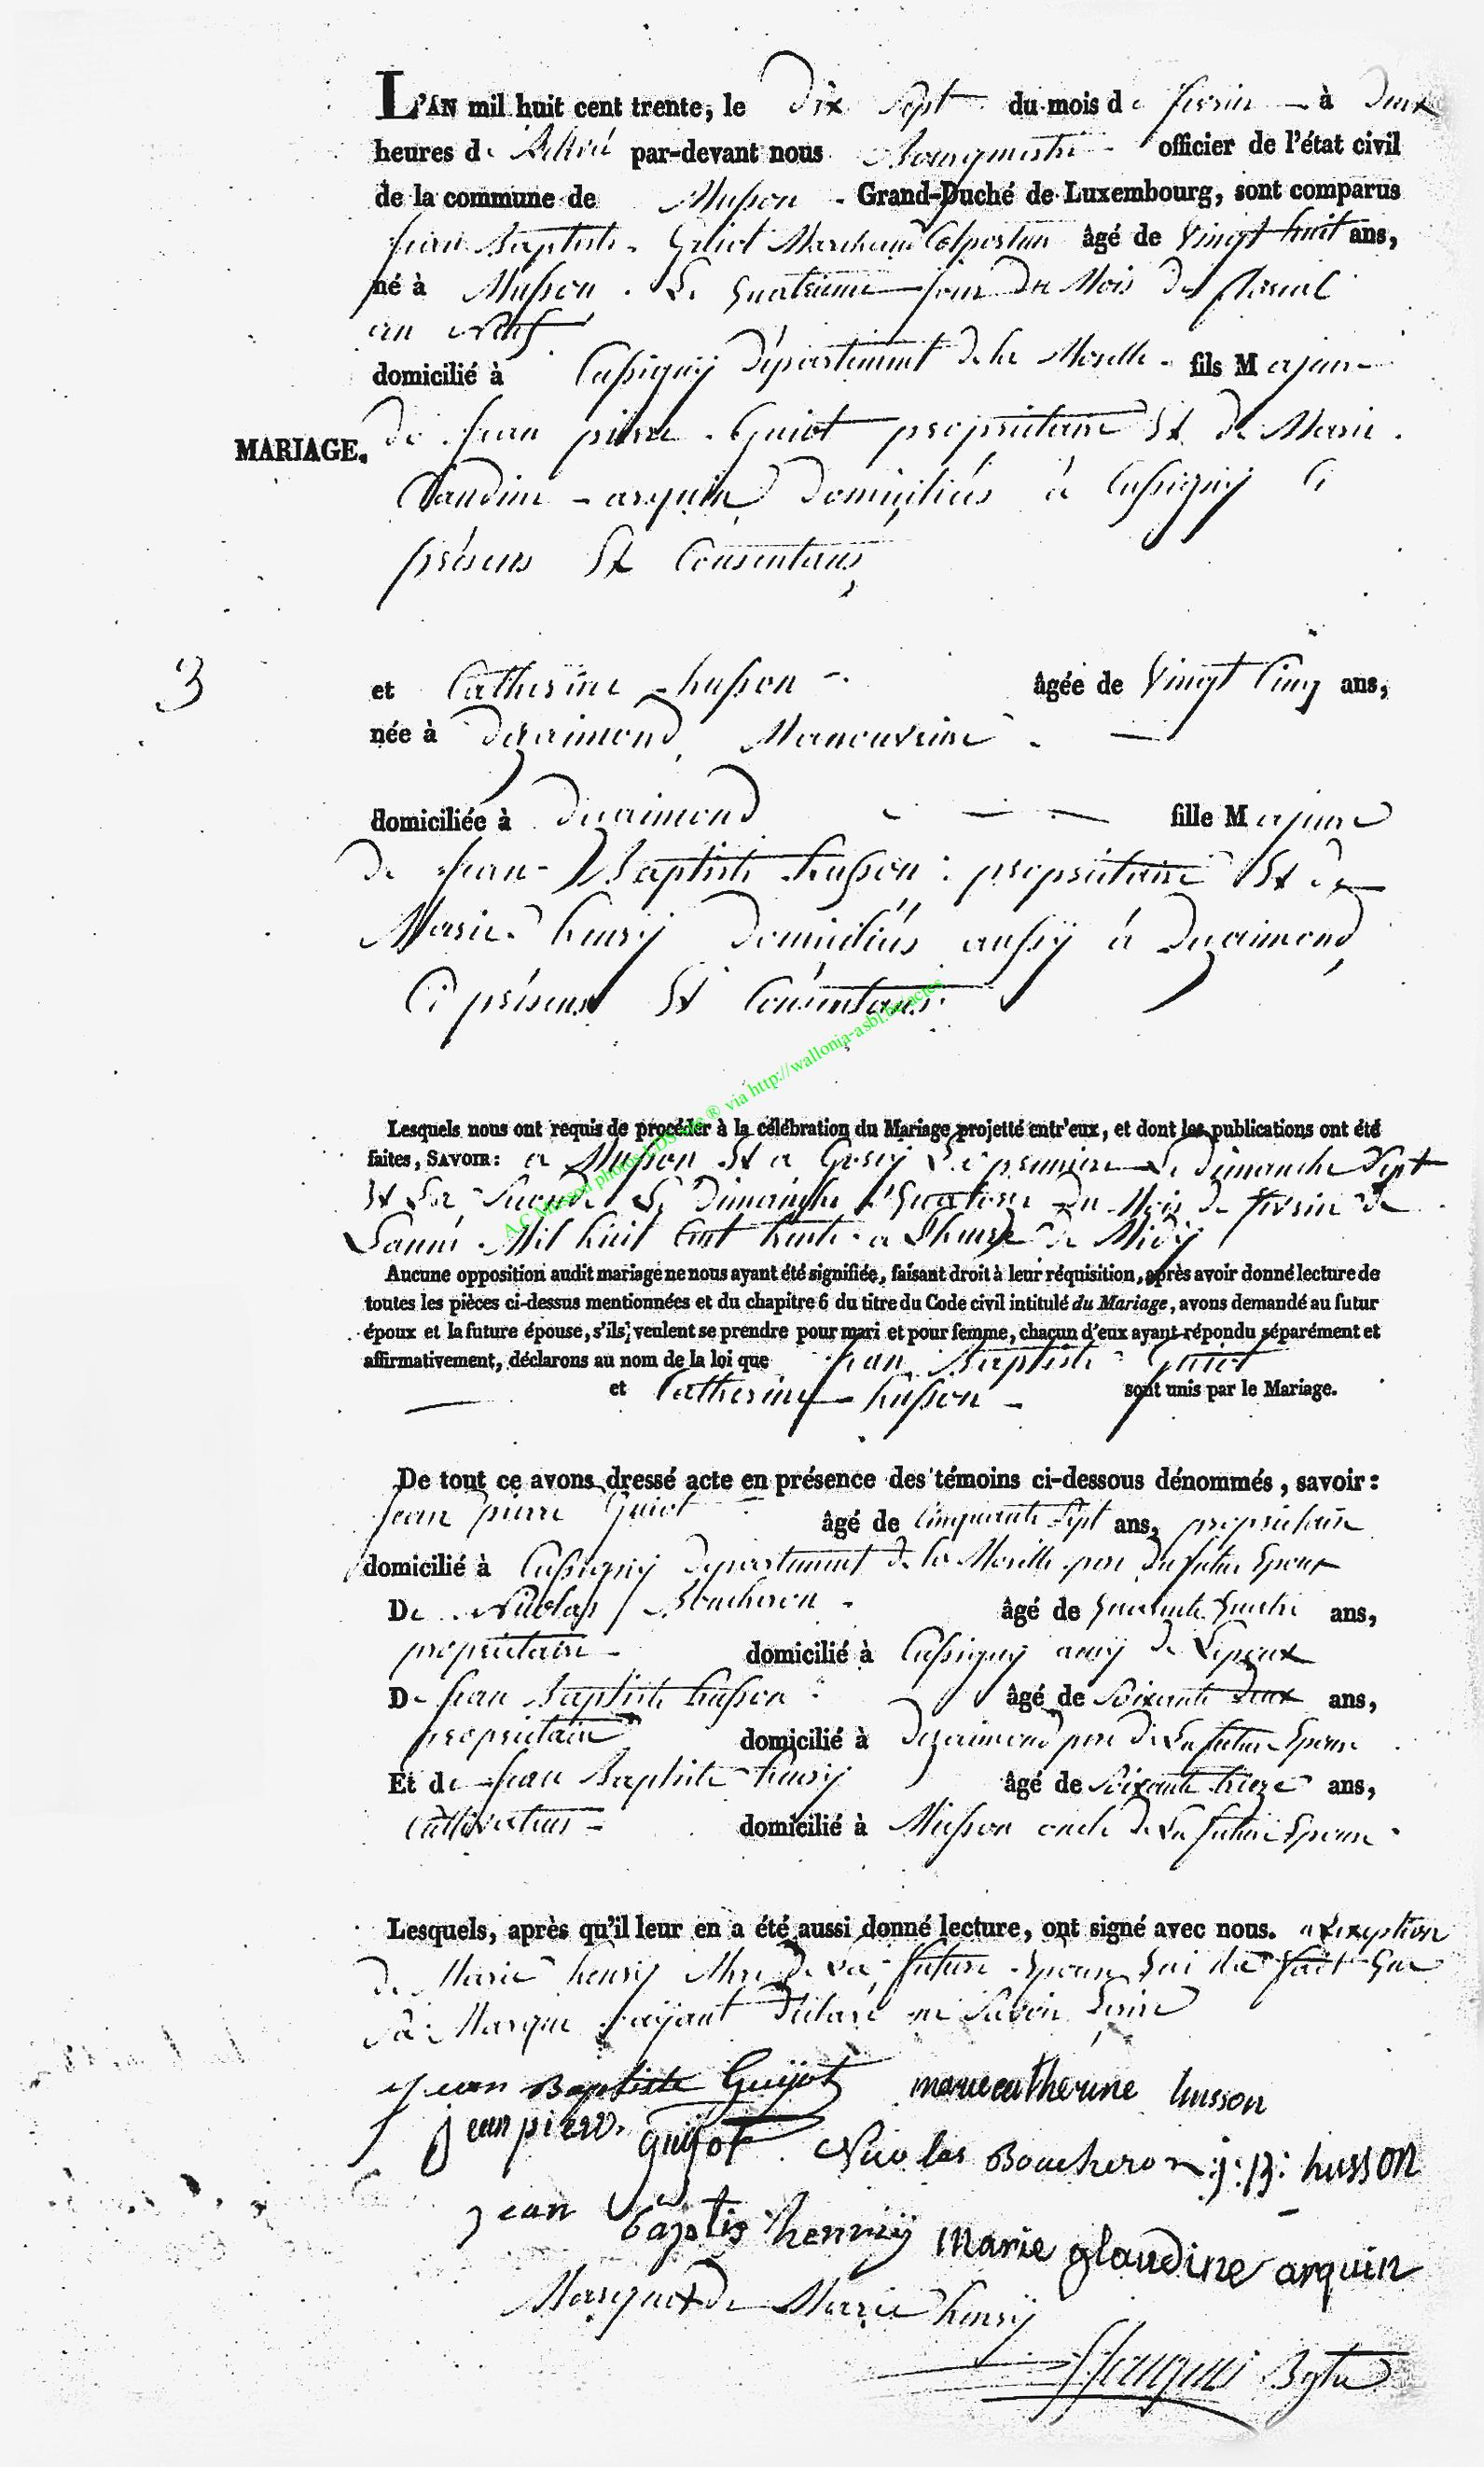 L'AN mil huit cent trente, le dix Sept du mois de fevrier à deux
heures de par-devant nous Bourgmestre officier de l'état civil
de la commune de Musson Grand-Duché de Luxembourg, sont comparus
Jean Baptiste Guiot Marchand Colporteur âgé de Vingt huit ans,
né à Musson. Le quatrieme jour du Mois de floreal
an neuf
domicilié à Cussigny département de la Moselle fils Majeur
MARIAGE. de Jean pierre Guiot propriétaire Et de Marie
Claudine arquin domiciliés à Cussigny Ci
présens Et Consentans,
3
et Catherine husson âgée de Vingt Cinq ans,
née à Manouvrière
domiciliée à fille Majeure
de Jean Baptiste husson propriétaire Et de
Marie henry domiciliés aussy à
Ci présens Et Consentans.
A.C Musson photos LDS site ® via http://wallonia-asbl.be/actes
Lesquels nous ont requis de procéder à la célébration du Mariage projetté entr'eux, et dont les publications ont été
faites, SAVOIR: a Musson Et a Gorcy La premiere Le dimanche Sept
Et La Seconde Le Dimanche Quatorze du Mois de fevrier de
Lanné Mil huit Cent trente a Lheure de Midy
Aucune opposition audit mariage ne nous ayant été signifiée, faisant droit à leur réquisition, après avoir donné lecture de
toutes les pièces ci-dessus mentionnées et du chapitre 6 du titre du Code civil intitulé du Mariage, avons demandé au futur
époux et la future épouse, s'ils veulent se prendre pour mari et pour femme, chacun d'eux ayant répondu séparément et
affirmativement, déclarons au nom de la loi que Jean Baptiste Guiot
et Catherine husson sont unis par le Mariage.
De tout ce avons dressé acte en présence des témoins ci-dessous dénommés, savoir:
Jean pierre Guiot âgé de Cinquante Sept ans, propriétaire
domicilié à Cussigny département de la Moselle pere du futur Epoux
De Nicolas Boucheron âgé de quarante quatre ans,
propriétaire domicilié à Cussigny amy de Lepoux
De Jean Baptiste husson âgé de Soixante deux ans,
propriétaire domicilié à pere de La future Epouse
Et de Jean Baptiste henry âgé de Soixante treize ans,
Cultivateur domicilié à Musson oncle de La future Epouse
Lesquels, après qu'il leur en a été aussi donné lecture, ont signé avec nous. a Lexeption
de Marie henry Mere de La future Epouse qui na fait que
Sa Marque ayant declaré ne Savoir Ecrire
jean Baptiste Guÿot marie catherine husson
jean pierre guÿot Nicolas Boucheron j: B: husson
jean baptis henrÿ Marie glaudine arquin
Marque + de Marie henrÿ
Bgtre